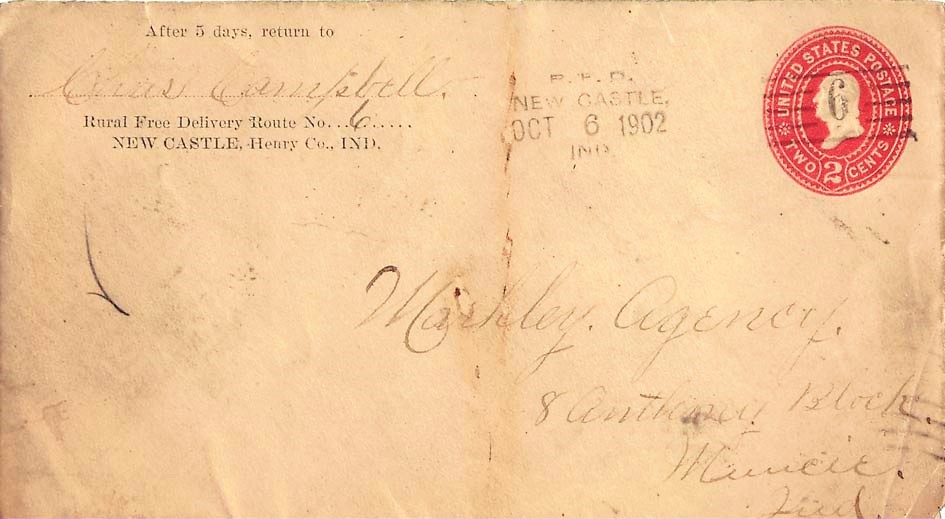 After 5 days, return to
Campbell.
Rural Free Delivery Route No...6.....
NEW CASTLE, Henry Co., IND.
R.F.D.
NEW CASTLE,
OCT 6 1902
IND.
UNITED STATES POSTAGE
6
TWO 2 CENTS
Markley. Agency.
8 Anthony Block.
Muncie.
Ind.